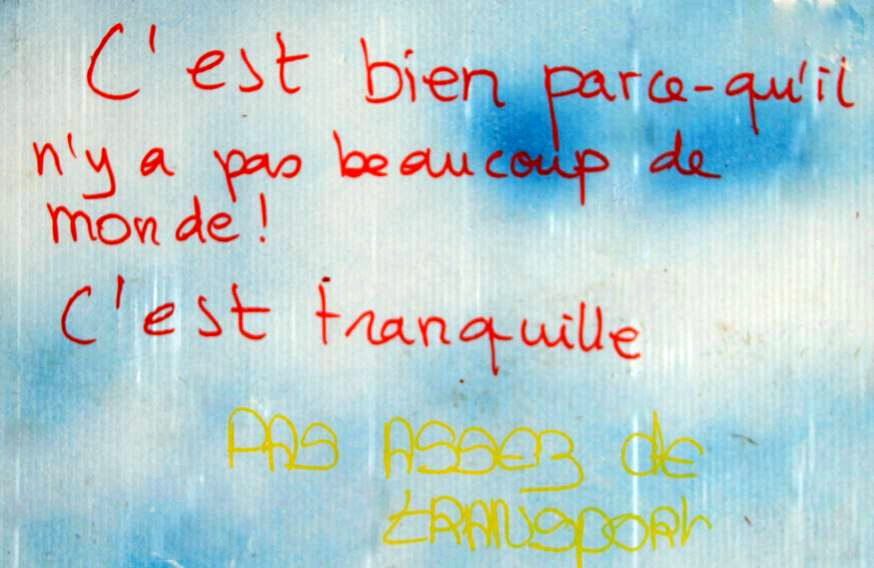 C'est bien parce-qu'il
n'y a pas beaucoup de
monde!
C'est tranquille
PAS ASSEZ de
tRANSPORt